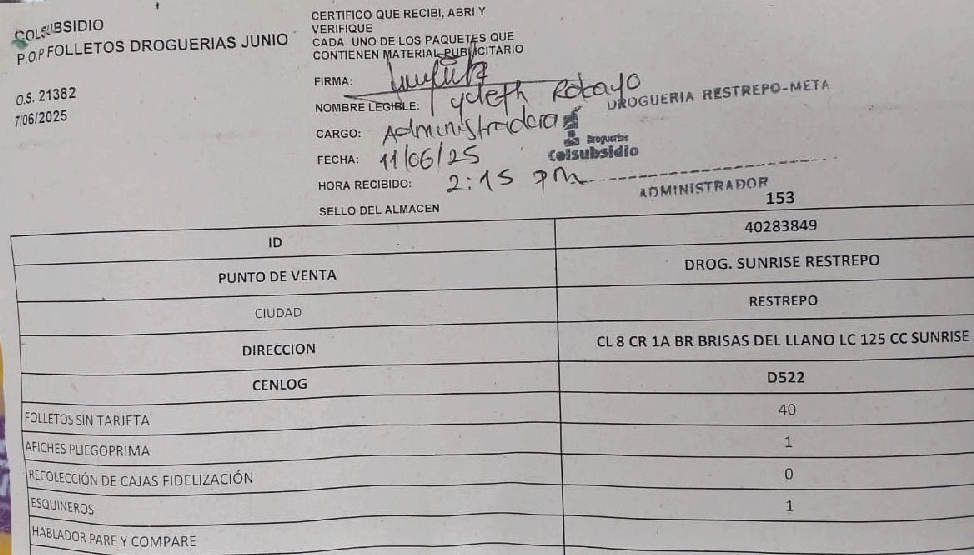 COLSUBSIDIO
P.O.P FOLLETOS DROGUERIAS JUNIO
O.S. 21382
7/06/2025
CERTIFICO QUE RECIBI, ABRI Y
VERIFIQUE
CADA UNO DE LOS PAQUETES QUE
CONTIENEN MATERIAL PUBLICITARIO
FIRMA:
NOMBRE LEGIBLE: Robayo
CARGO: Administradora
FECHA: 11/06/25
HORA RECIBIDO: 2:15 pm
SELLO DEL ALMACEN
DROGUERIA RESTREPO-META
Droguerías
Colsubsidio
ADMINISTRADOR
153
ID 40283849
PUNTO DE VENTA DROG. SUNRISE RESTREPO
CIUDAD RESTREPO
DIRECCION CL 8 CR 1A BR BRISAS DEL LLANO LC 125 CC SUNRISE
CENLOG D522
FOLLETOS SIN TARIFTA 40
AFICHES PLIEGOPRIMA 1
RECOLECCIÓN DE CAJAS FIDELIZACIÓN 0
ESQUINEROS 1
HABLADOR PARE Y COMPARE